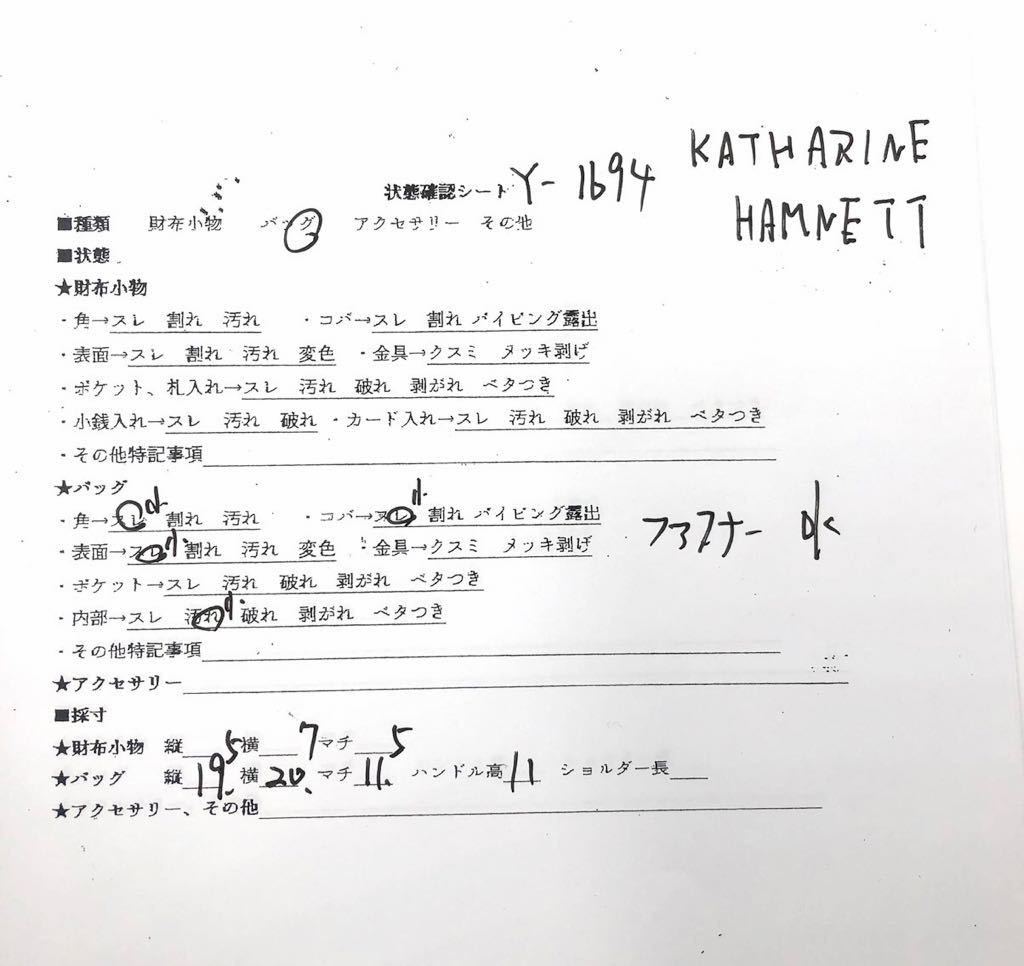 KATHARINE
HAMNETT
状態確認シート Y-1694
■種類 財布小物 バッグ アクセサリー その他
■状態
★財布小物
・角→スレ 割れ 汚れ ・コバ→スレ 割れ パイピング露出
・表面→スレ 割れ 汚れ 変色 ・金具→クスミ メッキ剥げ
・ポケット、札入れ→スレ 汚れ 破れ 剥がれ ベタつき
・小銭入れ→スレ 汚れ 破れ ・カード入れ→スレ 汚れ 破れ 剥がれ ベタつき
・その他特記事項
★バッグ
・角→スレ 小 割れ 汚れ ・コバ→スレ 小 割れ パイピング露出
・表面→スレ 小 割れ 汚れ 変色 ・金具→クスミ メッキ剥げ
ファスナー
・ポケット→スレ 汚れ 破れ 剥がれ ベタつき
・内部→スレ 汚れ 小 破れ 剥がれ ベタつき
・その他特記事項
★アクセサリー
■採寸
★財布小物 縦 横 マチ
★バッグ 縦19. 横20. マチ11. ハンドル高11 ショルダー長
5 7 5
★アクセサリー、その他